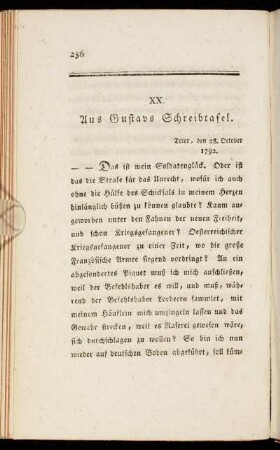 256
XX.
Aus Gustavs Schreibtafel.
Trier, den 28. October
1792.
— — Das ist mein Soldatenglück. Oder ist
das die Strafe für das Unrecht, wofür ich auch
ohne die Hülfe des Schicksals in meinem Herzen
hinlänglich büßen zu können glaubte? Kaum an-
geworben unter den Fahnen der neuen Freiheit,
und schon Kriegsgefangener? Oesterreichischer
Kriegsgefangener zu einer Zeit, wo die große
Französische Armee siegend vordringt? An ein
abgesondertes Piquet muß ich mich anschließen,
weil der Befehlshaber es will, und muß, wäh-
rend der Befehlshaber Lorbeern sammlet, mit
meinem Häuflein mich umzingeln lassen und das
Gewehr strecken, weil es Raserei gewesen wäre,
sich durchschlagen zu wollen? So bin ich nun
wieder auf deutschen Boden abgeführt, soll käm-